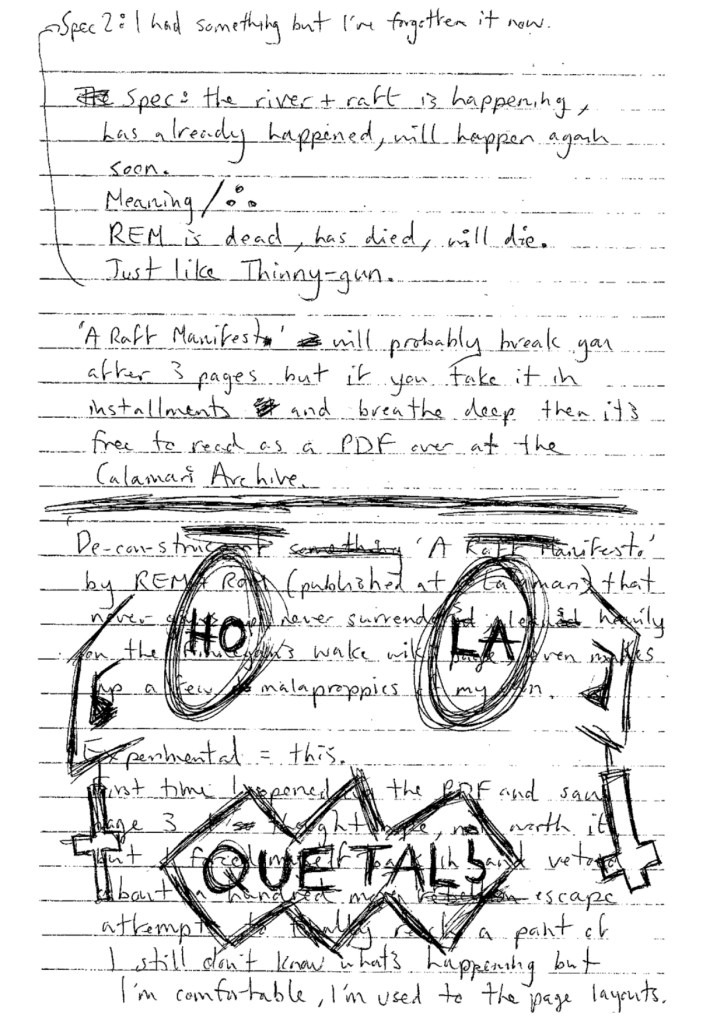 Spec 2: I had something but I've forgotten it now.
Spec: the river + raft is happening,
has already happened, will happen again
soon.
Meaning / ∴
REM is dead, has died, will die.
Just like Thinny-gun.
'A Raft Manifesto' will probably break you
after 3 pages but if you take it in
installments and breathe deep then it's
free to read as a PDF over at the
Calamari Archive.
De-con-struct something 'A Raft Manifesto'
by REM + ROM (published at Calamari) that
never never surrenders heavily
HO
LA
on the wake wiki page even makes
up a few malaproppics of my own.
Experimental = this.
First time I opened the PDF and saw
page 3 I thought nope, not worth it
but I forced myself back in and
QUE TAL
about a hundred more escape
attempts to finally reach a point of
I still don't know what's happening but
I'm comfortable, I'm used to the page layouts.